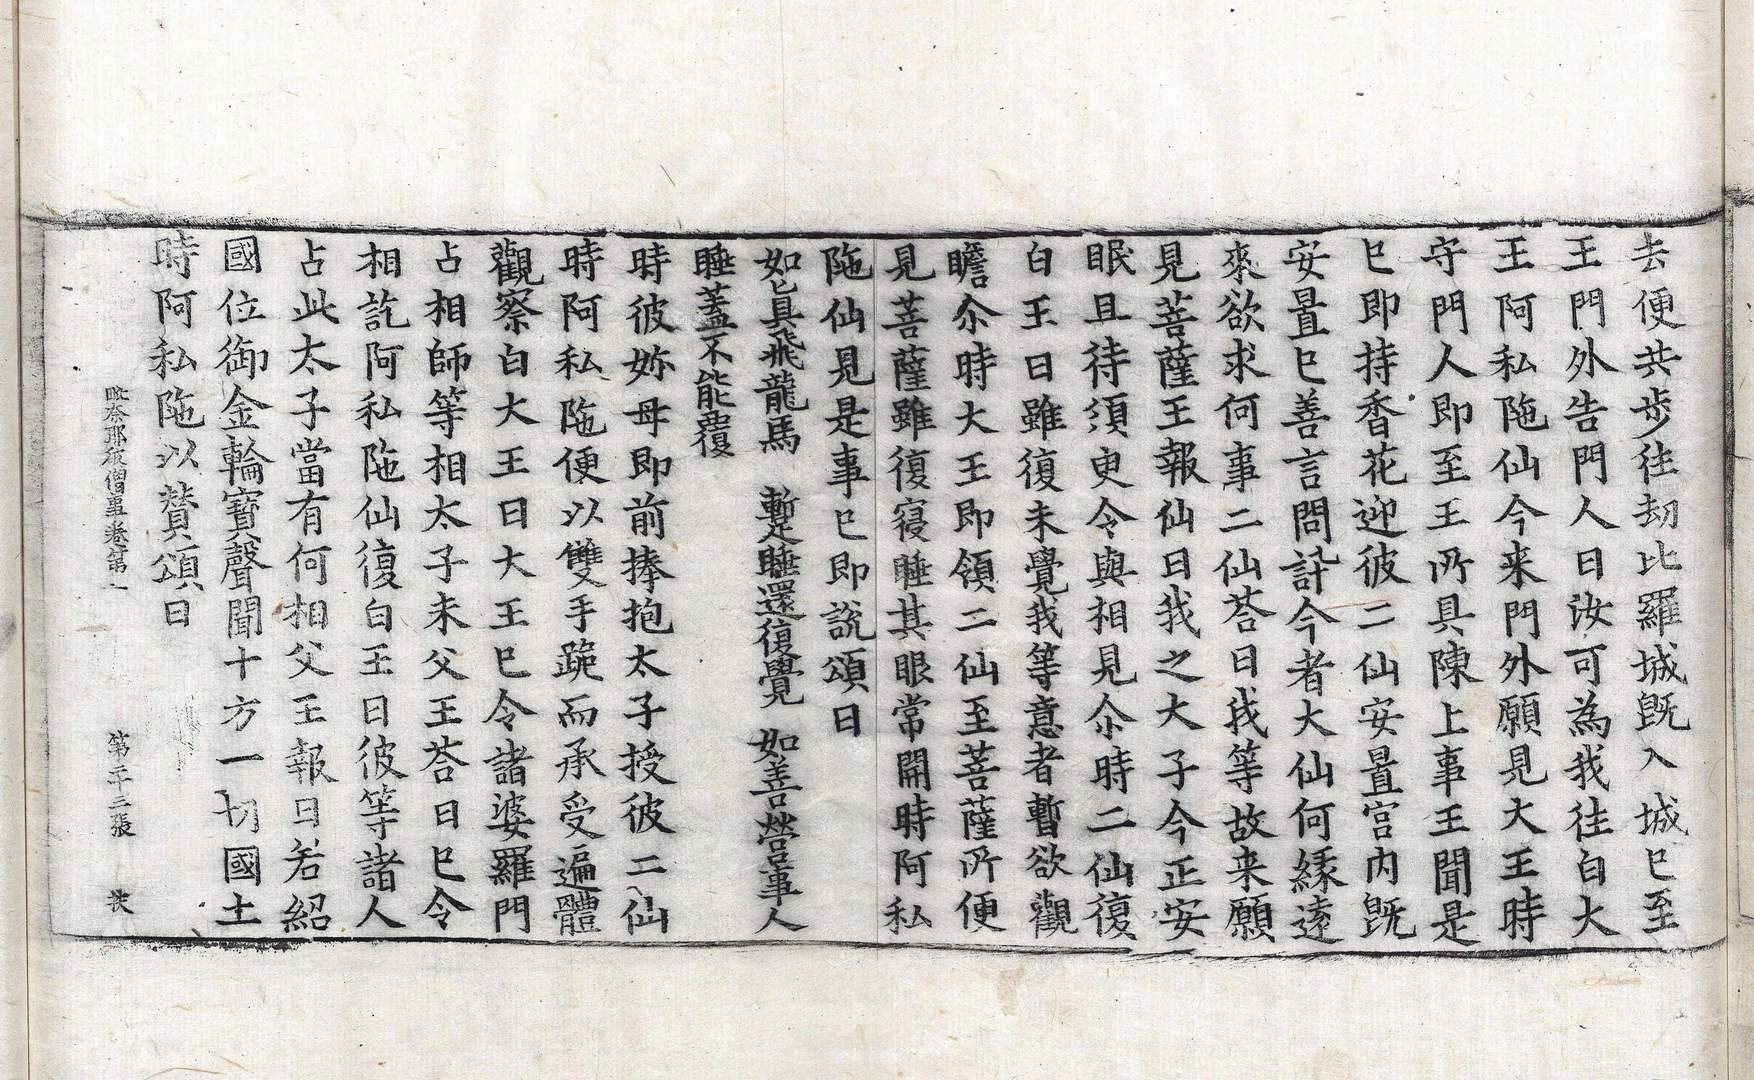 去便共步往刼比羅城旣入城已至
王門外告門人曰汝可為我往白大
王阿私陁仙今来門外願見大王時
守門人即至王所具陳上事王聞是
已即持香花迎彼二仙安置宫内旣
安置已善言問訊今者大仙何緣遠
來欲求何事二仙荅曰我等故来願
見菩薩王報仙曰我之大子今正安
眠且待須臾令與相見尒時二仙復
白王曰雖復未覺我等意者暫欲觀
瞻尒時大王即領二仙至菩薩所便
見菩薩雖復寢睡其眼常開時阿私
陁仙見是事已即說頌曰
如是真飛龍馬　暫睡還復覺　如善營事人
睡蓋不能覆
時彼妳母即前捧抱太子授彼二仙
時阿私陁便以雙手跪而承受遍體
觀察白大王曰大王已令諸婆羅門
占相師等相太子未父王荅曰已令
相訖阿私陁仙復白王曰彼等諸人
占此太子當有何相父王報曰若紹
國位御金輪寶聲聞十方一切國土
時阿私陁以贊頌曰
毗奈耶破僧事卷第一　第二十三張